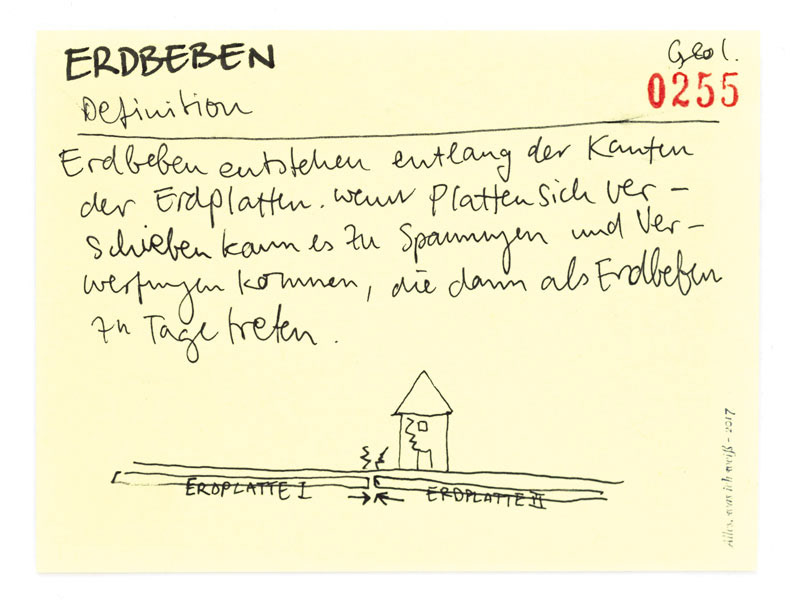 ERDBEBEN
Geol.
0255
Definition
Erdbeben entstehen entlang der Kanten
der Erdplatten. wenn Platten sich ver-
schieben kann es zu Spannungen und Ver-
werfungen kommen, die dann als Erdbeben
zu Tage treten.
ERDPLATTE I
ERDPLATTE II
Alles, was ich weiß - 2017